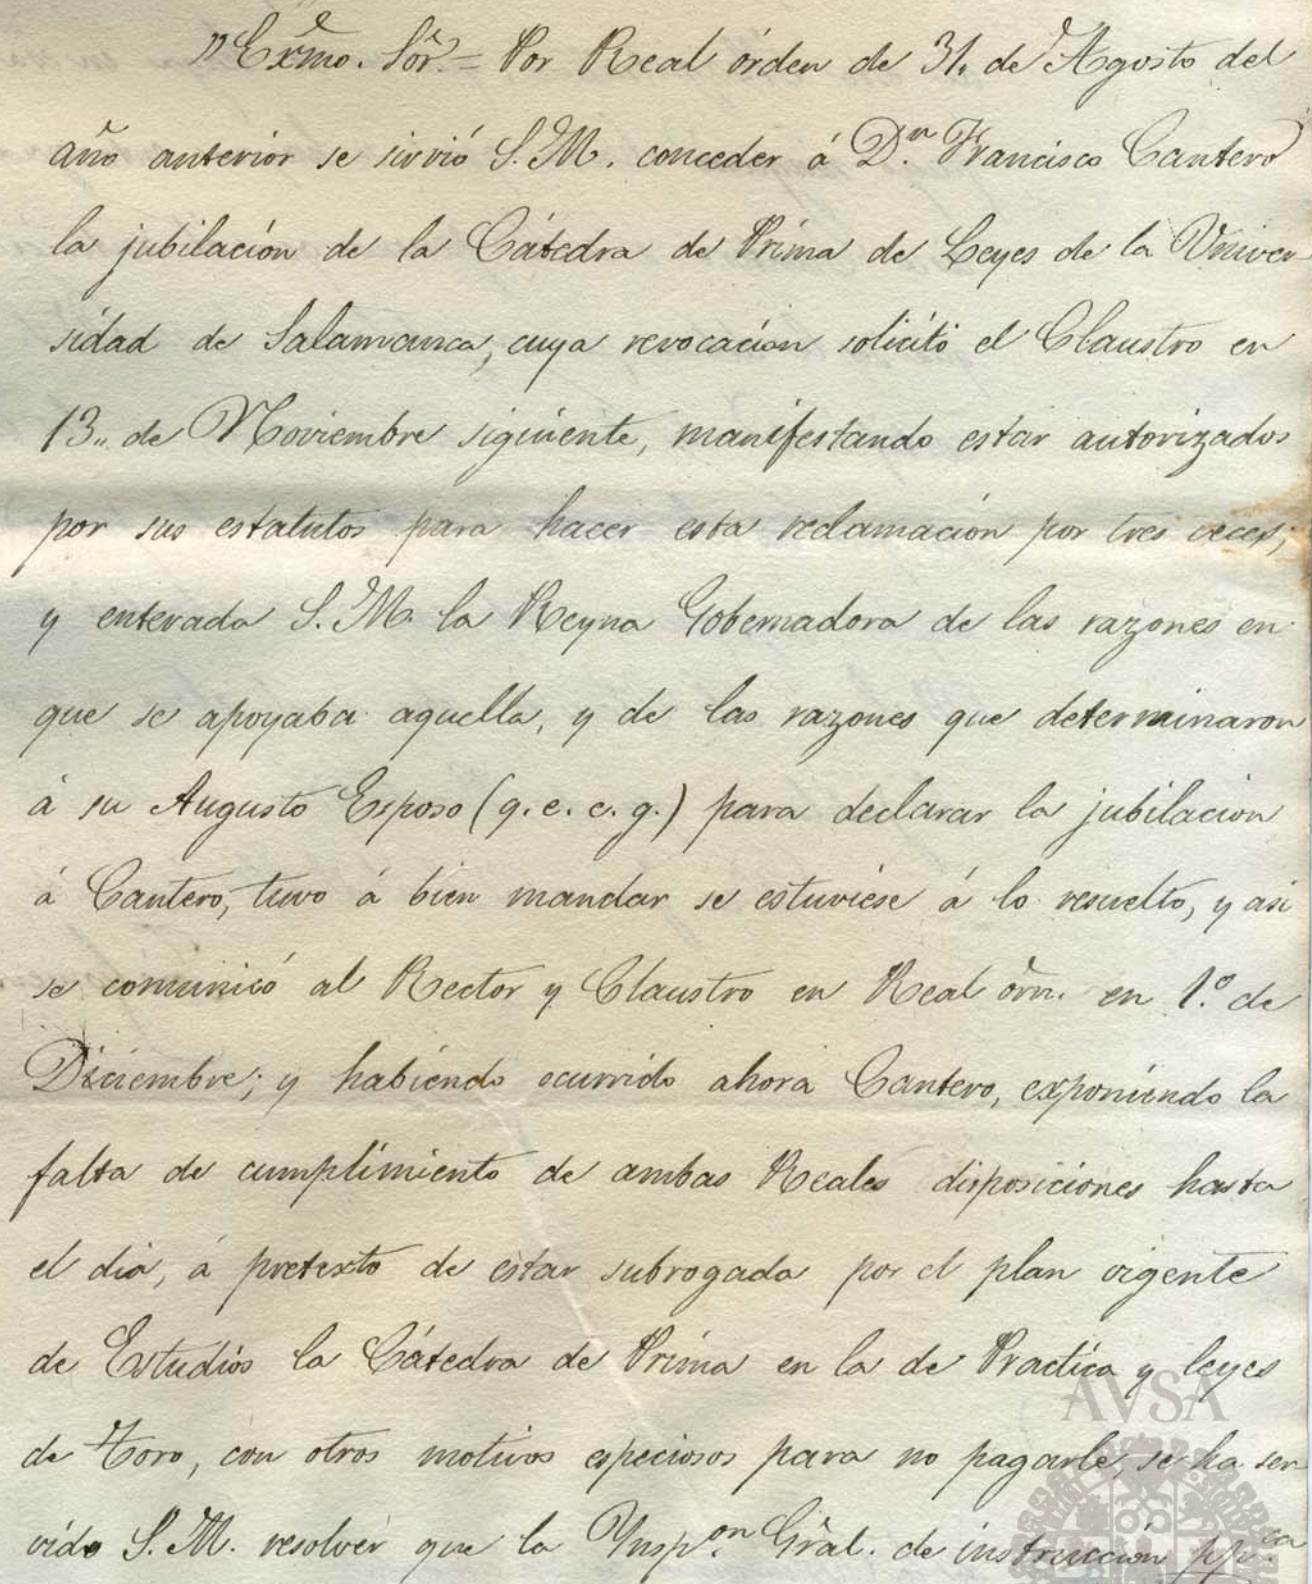 "Exm̃o. Sõr.= Por Real órden de 31,, de Agosto del
año anterior se sirvió S.M. conceder á D.ⁿ Francisco Cantero
la jubilación de la Cátedra de Prima de Leyes de la Univer-
sidad de Salamanca, cuya revocación solicitó el Claustro en
13,, de Noviembre siguiente, manifestando estar autorizados
por sus estatutos para hacer esta reclamación por tres veces;
y enterada S.M. la Reyna Gobernadora de las razones en
que se apoyaba aquella, y de las razones que determinaron
á su Augusto Esposo (q.e.e.g.) para declarar la jubilación
á Cantero, tuvo á bien mandar se estuviése á lo resuelto, y asi
se comunicó al Rector y Claustro en Real õrn. en 1.º de
Diciembre; y habiendo ocurrido ahora Cantero, exponiendo la
falta de cumplimiento de ambas Reales disposiciones hasta
el dia, á pretexto de estar subrogada por el plan vigente
de Estudios la Cátedra de Prima en la de Practica y leyes
de Toro, con otros motivos especiosos para no pagarle, se ha ser
vido S.M. resolver que la Ynsp.ᵒⁿ Grãl. de instrucción pp.ᶜᵃ
AVSA